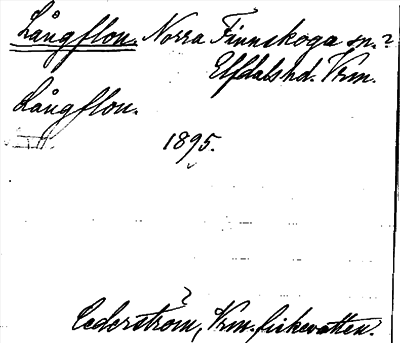 Långflon. Norra Finnskoga sn.?
Elfdals hd. Vrm.
Långflon.
1895.
?
Cederström, Vrm. fiskevatten.